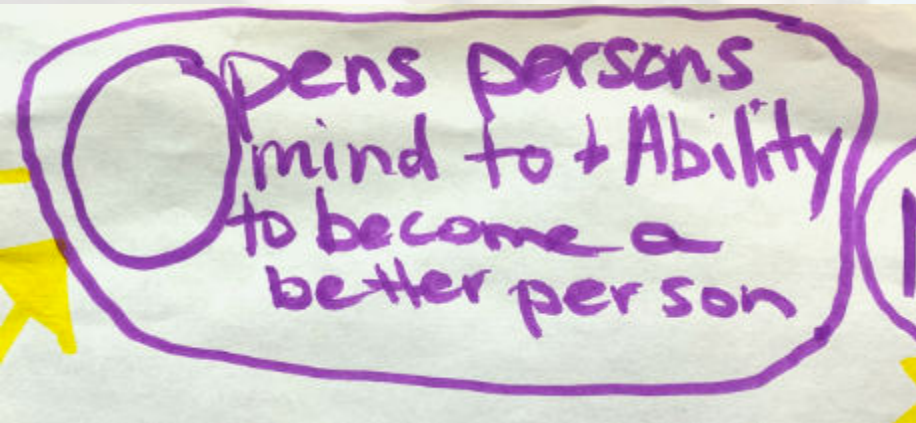 Opens persons
mind to + Ability
to become a
better person